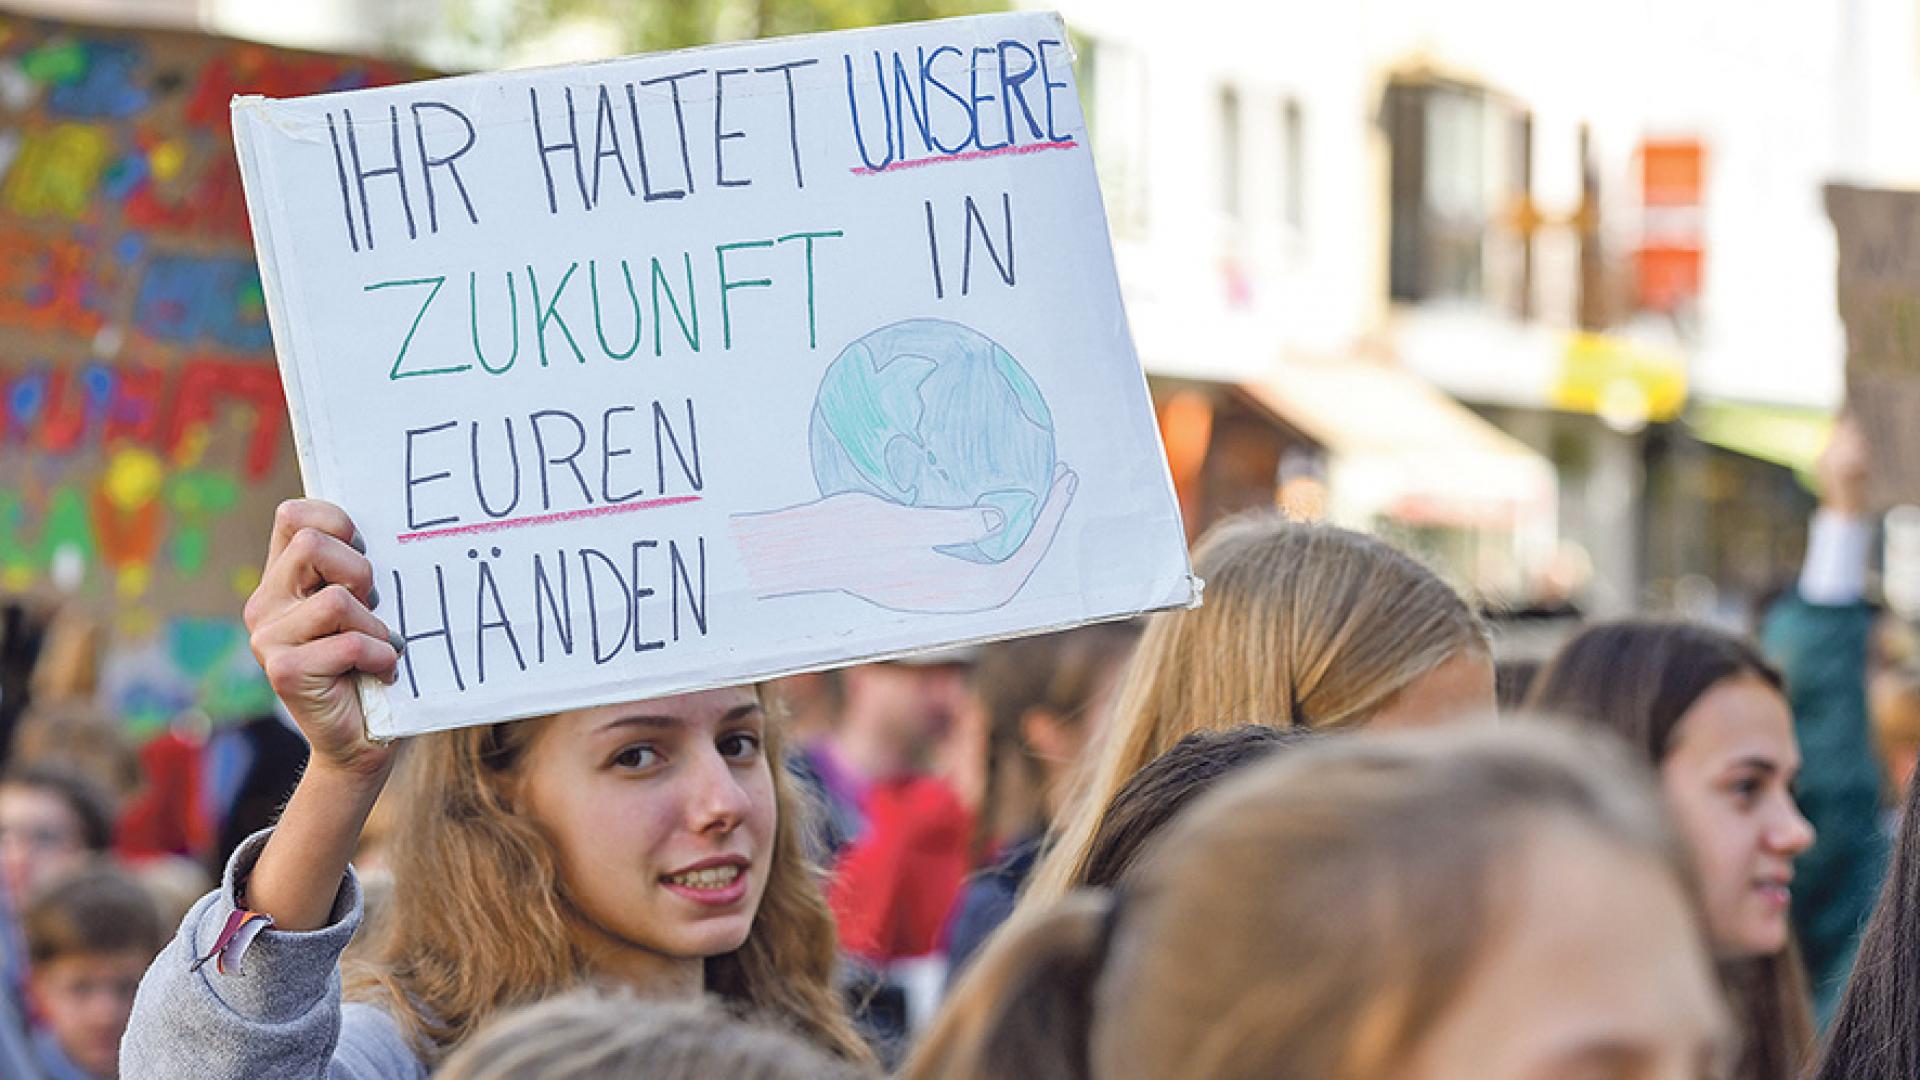 IHR HALTET UNSERE
ZUKUNFT IN
EUREN
HÄNDEN